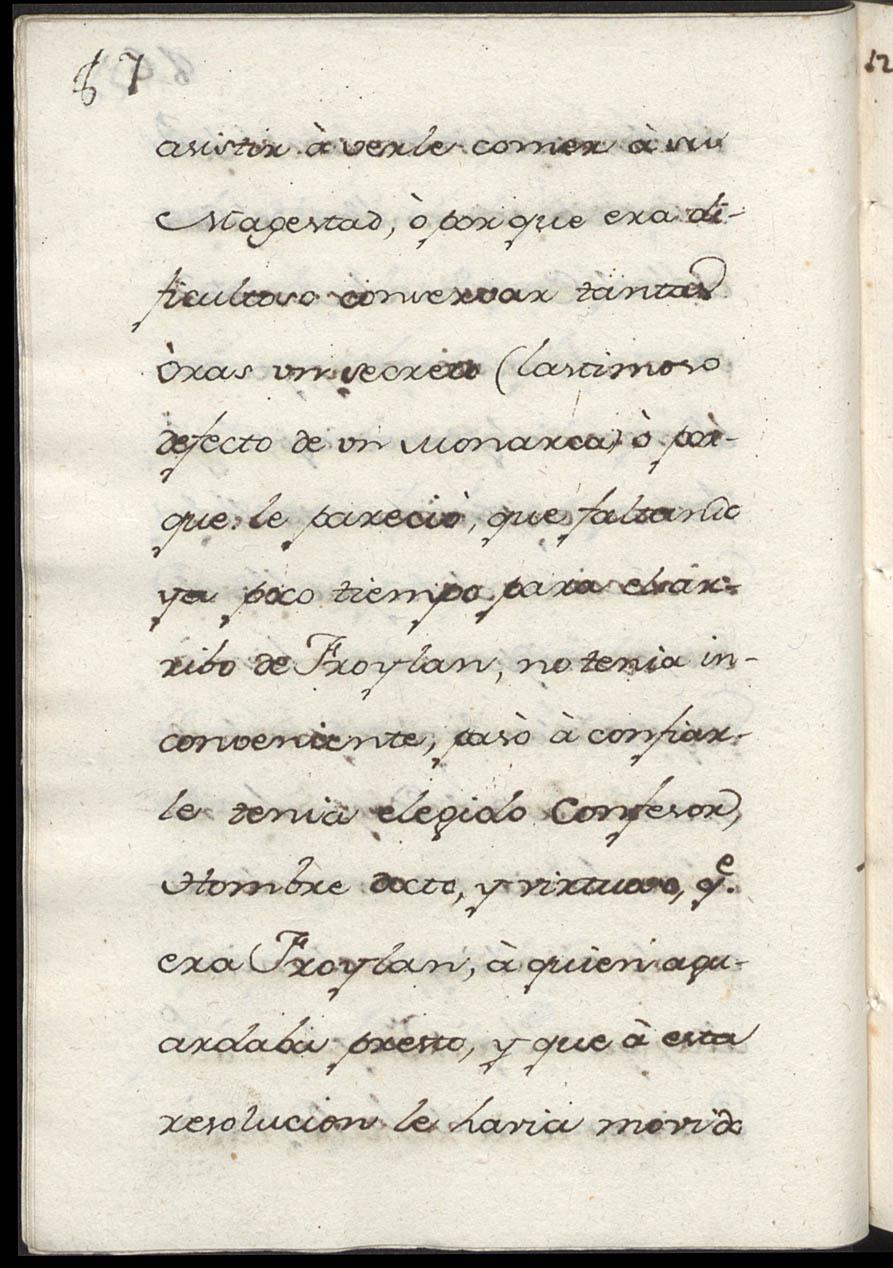 87
asistir à verle comer à su
Magestad, ò porque era di-
ficultoso conservar tantas
òras vn secreto (lastimoso
defecto de vn Monarca) ò pòr-
que le pareciò, que faltando
ya poco tiempo para el ar-
ribo de Froylan, no tenia in-
conveniente, pasò à confiar-
le tenia elegido Confesor,
Hombre docto, y virtuoso, q.e
era Froylan, à quien agu-
ardaba presto, y que à esta
resolucion le havia movido
12